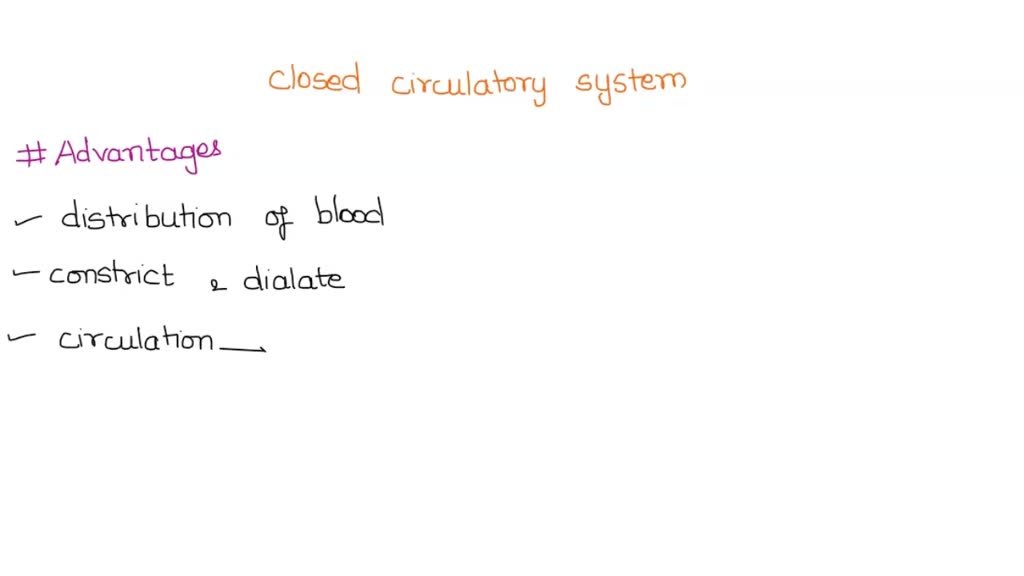 closed circulatory system
# Advantages
- distribution of blood
- constrict & dialate
- circulation —